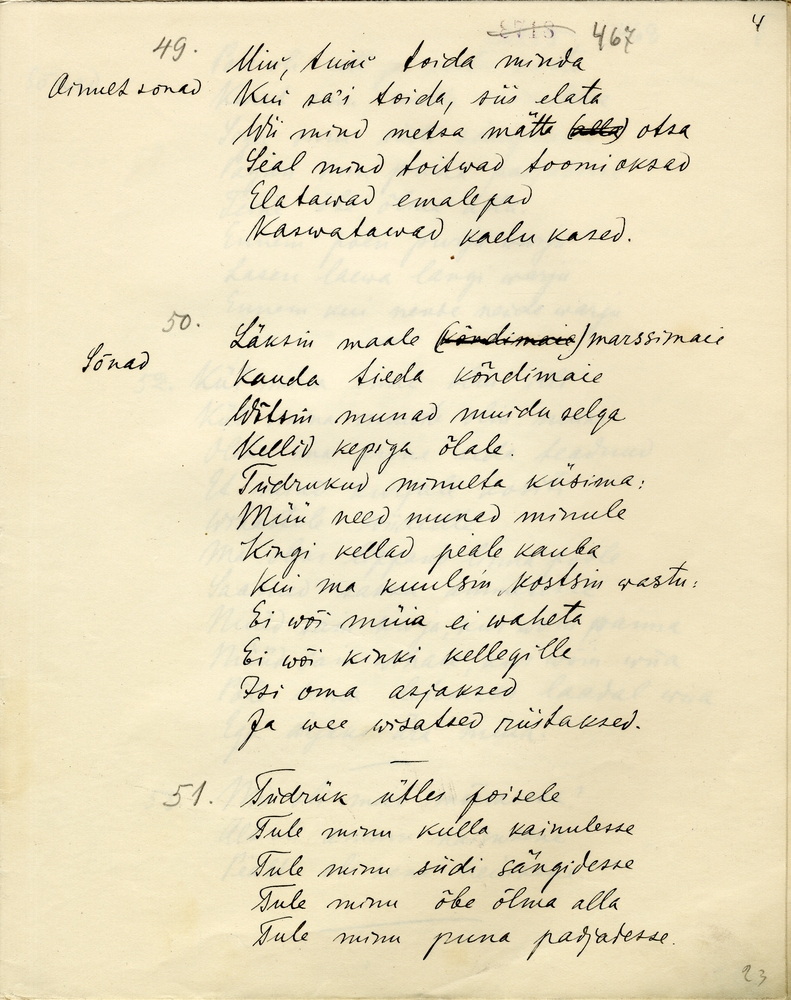 4
467
49.
Ainult sõnad
Miu, taat toida minda
Kui sa'i toida, siis elata
Wii mind metsa mätta (alla) otsa
Seal mind toitwad toomioksad
Elatawad emalepad
Kaswatawad kaelu kased.
50.
Sõnad
Läksin maale (kõndimaie) marssimaie
Kauda tieda kõndimaie
Wõtsin munad muidu selga
Kellid kepiga õlale.
Tüdrukud minulta küsima:
Müü need munad minule
Kingi kellad peale kauba
Kui ma kuulsin, kostsin wastu:
Ei wõi müia ei waheta
Ei wõi kinki kellegille
Isi oma asjaksed
Ja wee wisatsed riistaksed.
51.
Tüdrük ütles poisele
Tule minu kulla kainulesse
Tule minu siidi sängidesse
Tule minu õbe õlma alla
Tule minu puna padjadesse.
23